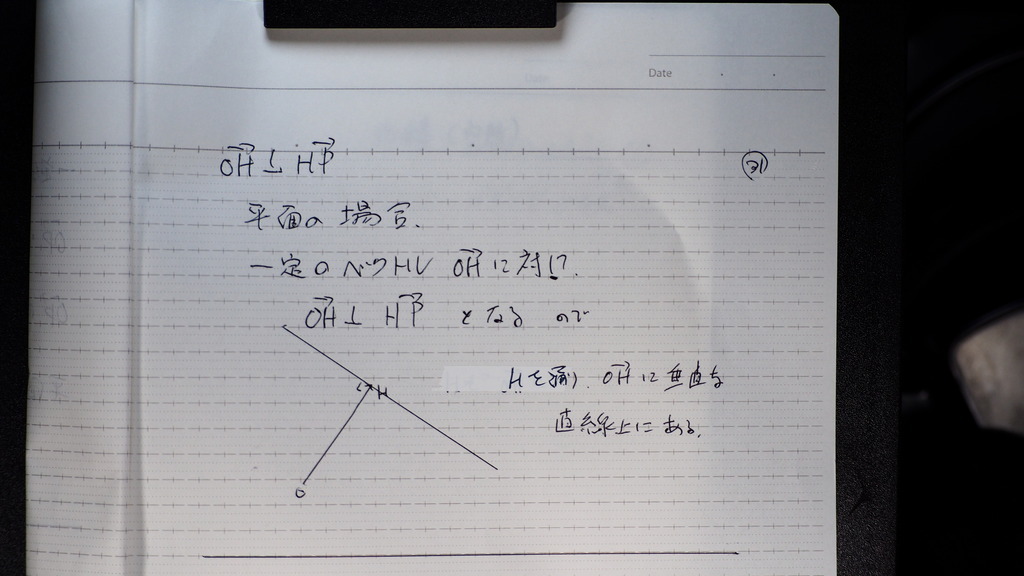 Date
OH⊥HP
㉛
平面の場合.
一定のベクトル OHに対して.
OH⊥HP となるので
Hを通り、OHに垂直な
直線上にある.
H
O